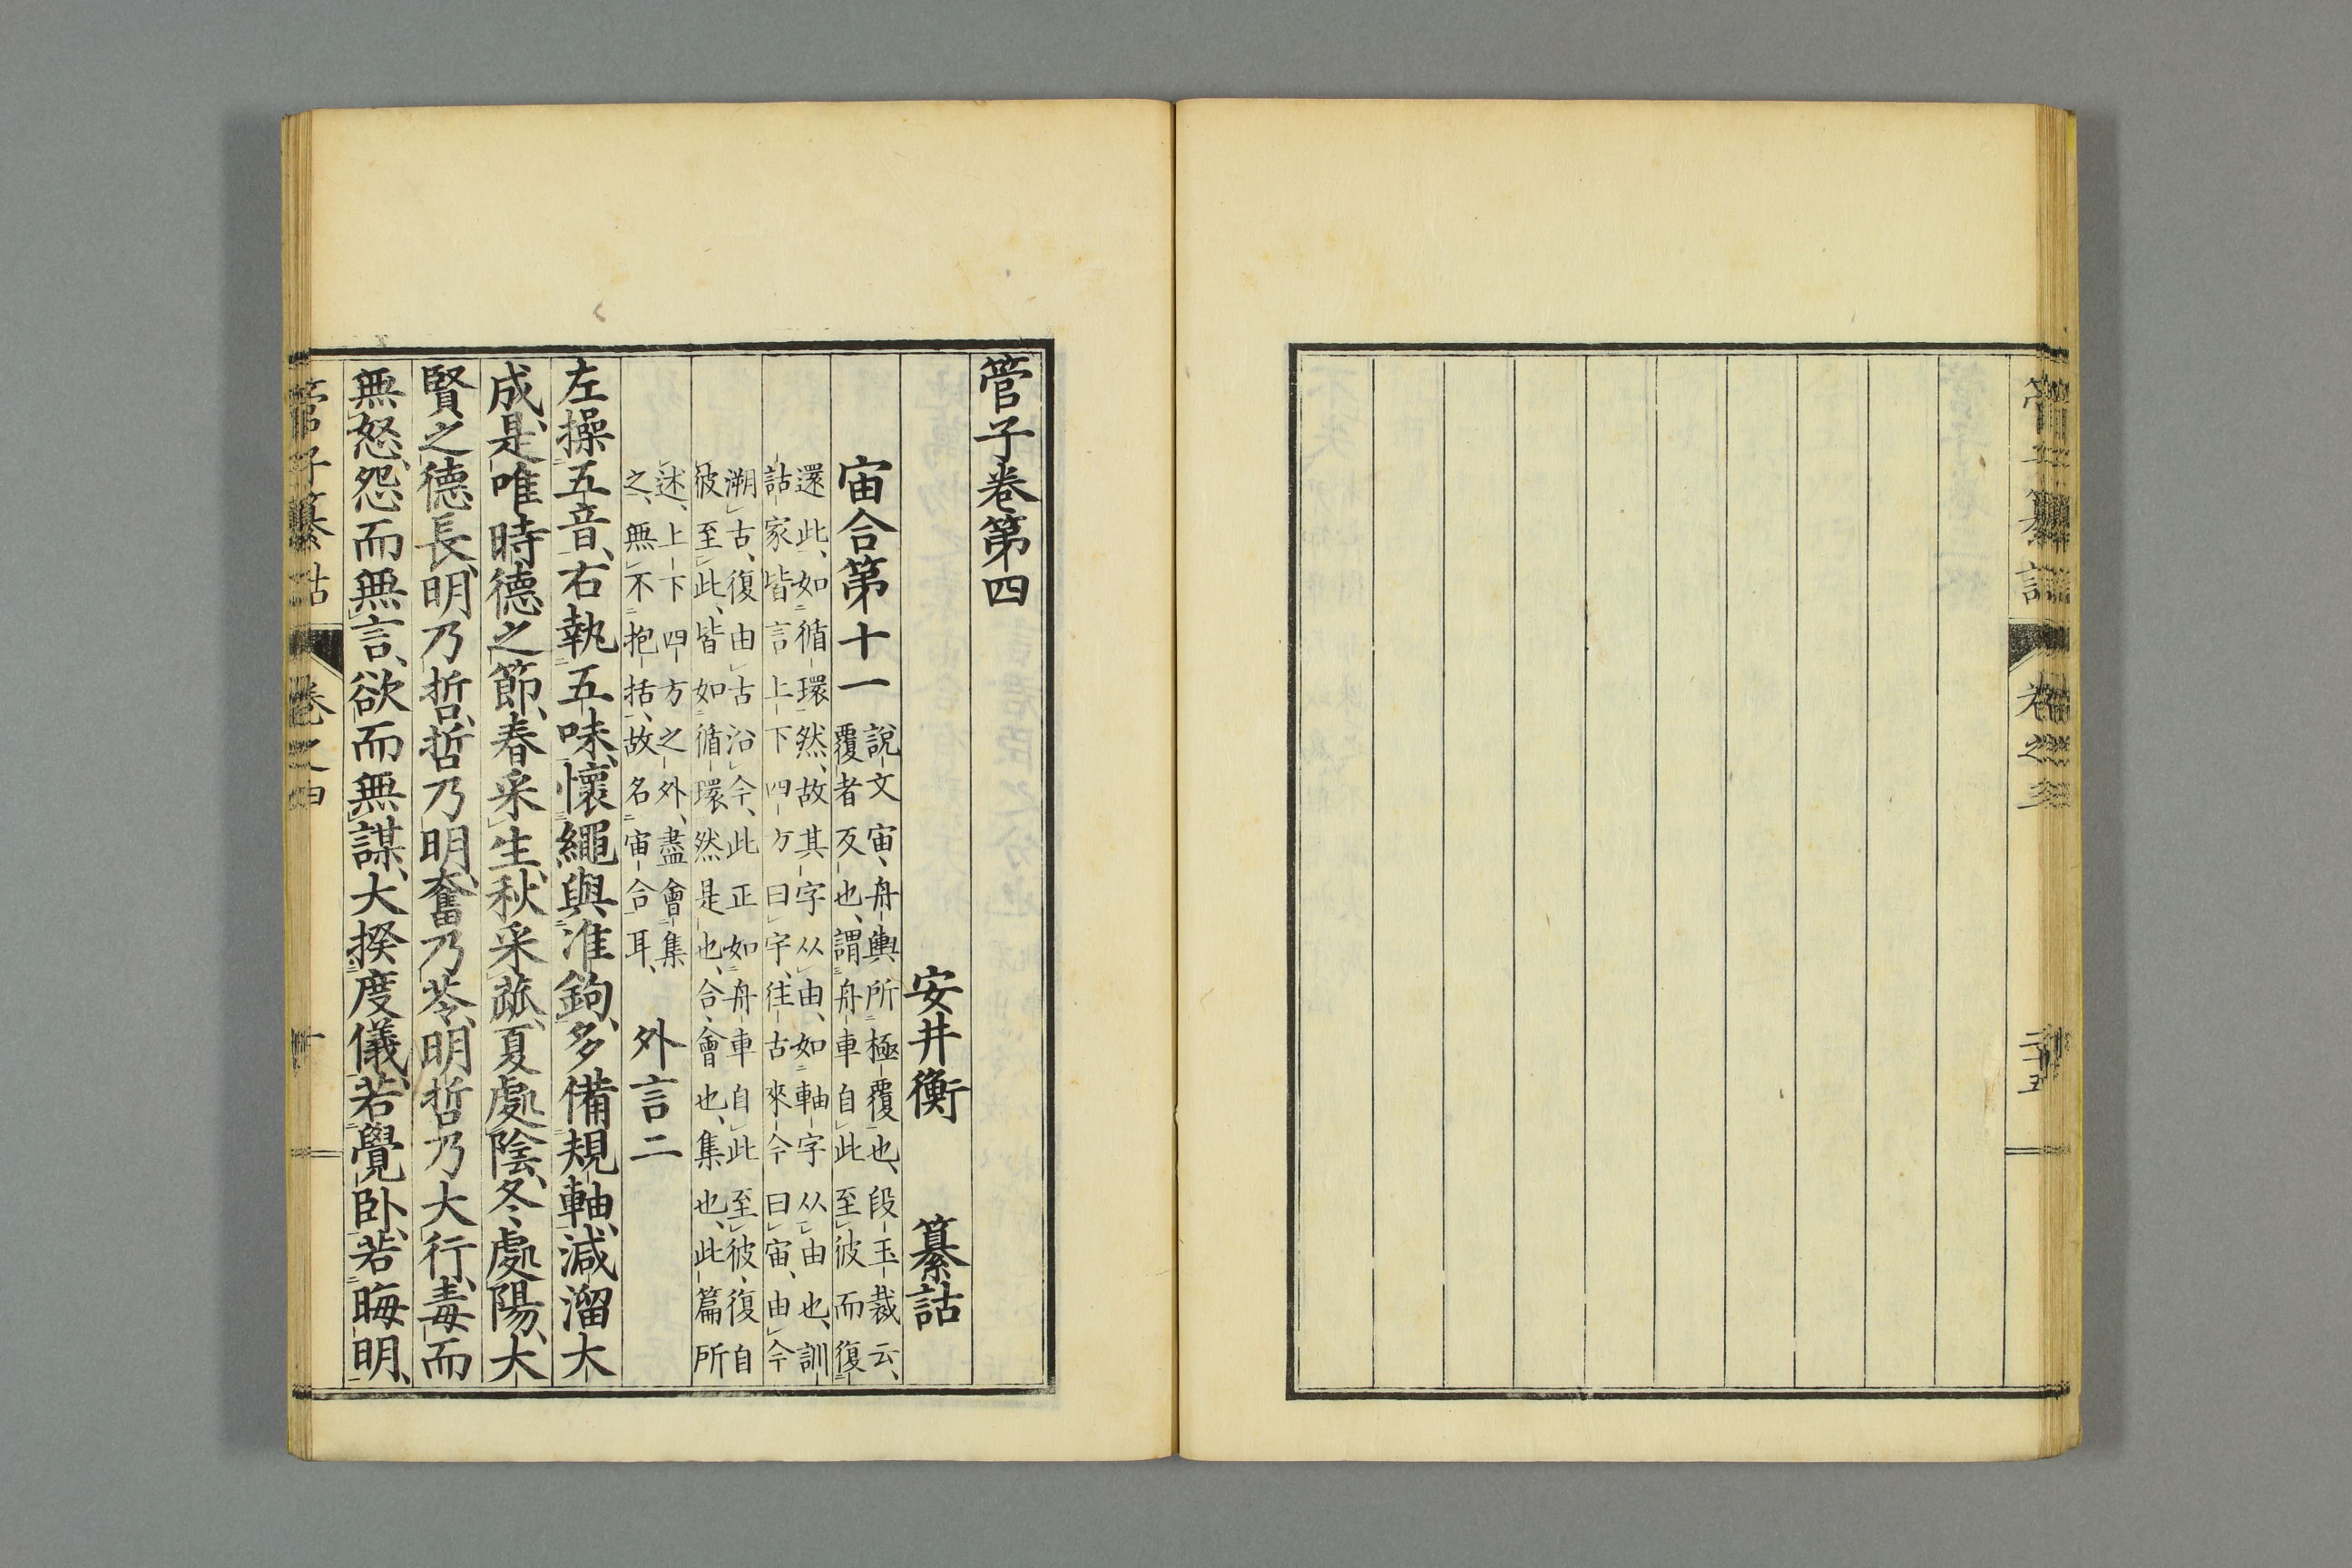 管子纂詁
卷之三
二十五
管子卷第四
安井衡 纂詁
宙合第十一
說文宙、舟輿所極覆也、段玉裁云、
覆者反也、謂舟車自此至彼而復
還此、如循環然、故其字从由、如軸字从由也、訓
詁家皆言上下四方曰宇、往古來今曰宙、由今
溯古、復由古沿今、此正如舟車自此至彼、復自
彼至此、皆如循環然是也、合、會也、集也、此篇所
述、上下四方之外、盡會集
之、無不抱括、故名宙合耳、
外言二
左操五音、右執五味、懷繩與准鉤、多備規軸、減溜大
成、是唯時德之節、春采生、秋采蓏、夏處陰、冬處陽、大
賢之德長、明乃哲、哲乃明、奮乃苓、明哲乃大行、毒而
無怒、怨而無言、欲而無謀、大揆度儀、若覺卧、若晦明、
管子纂詁
卷之四
一